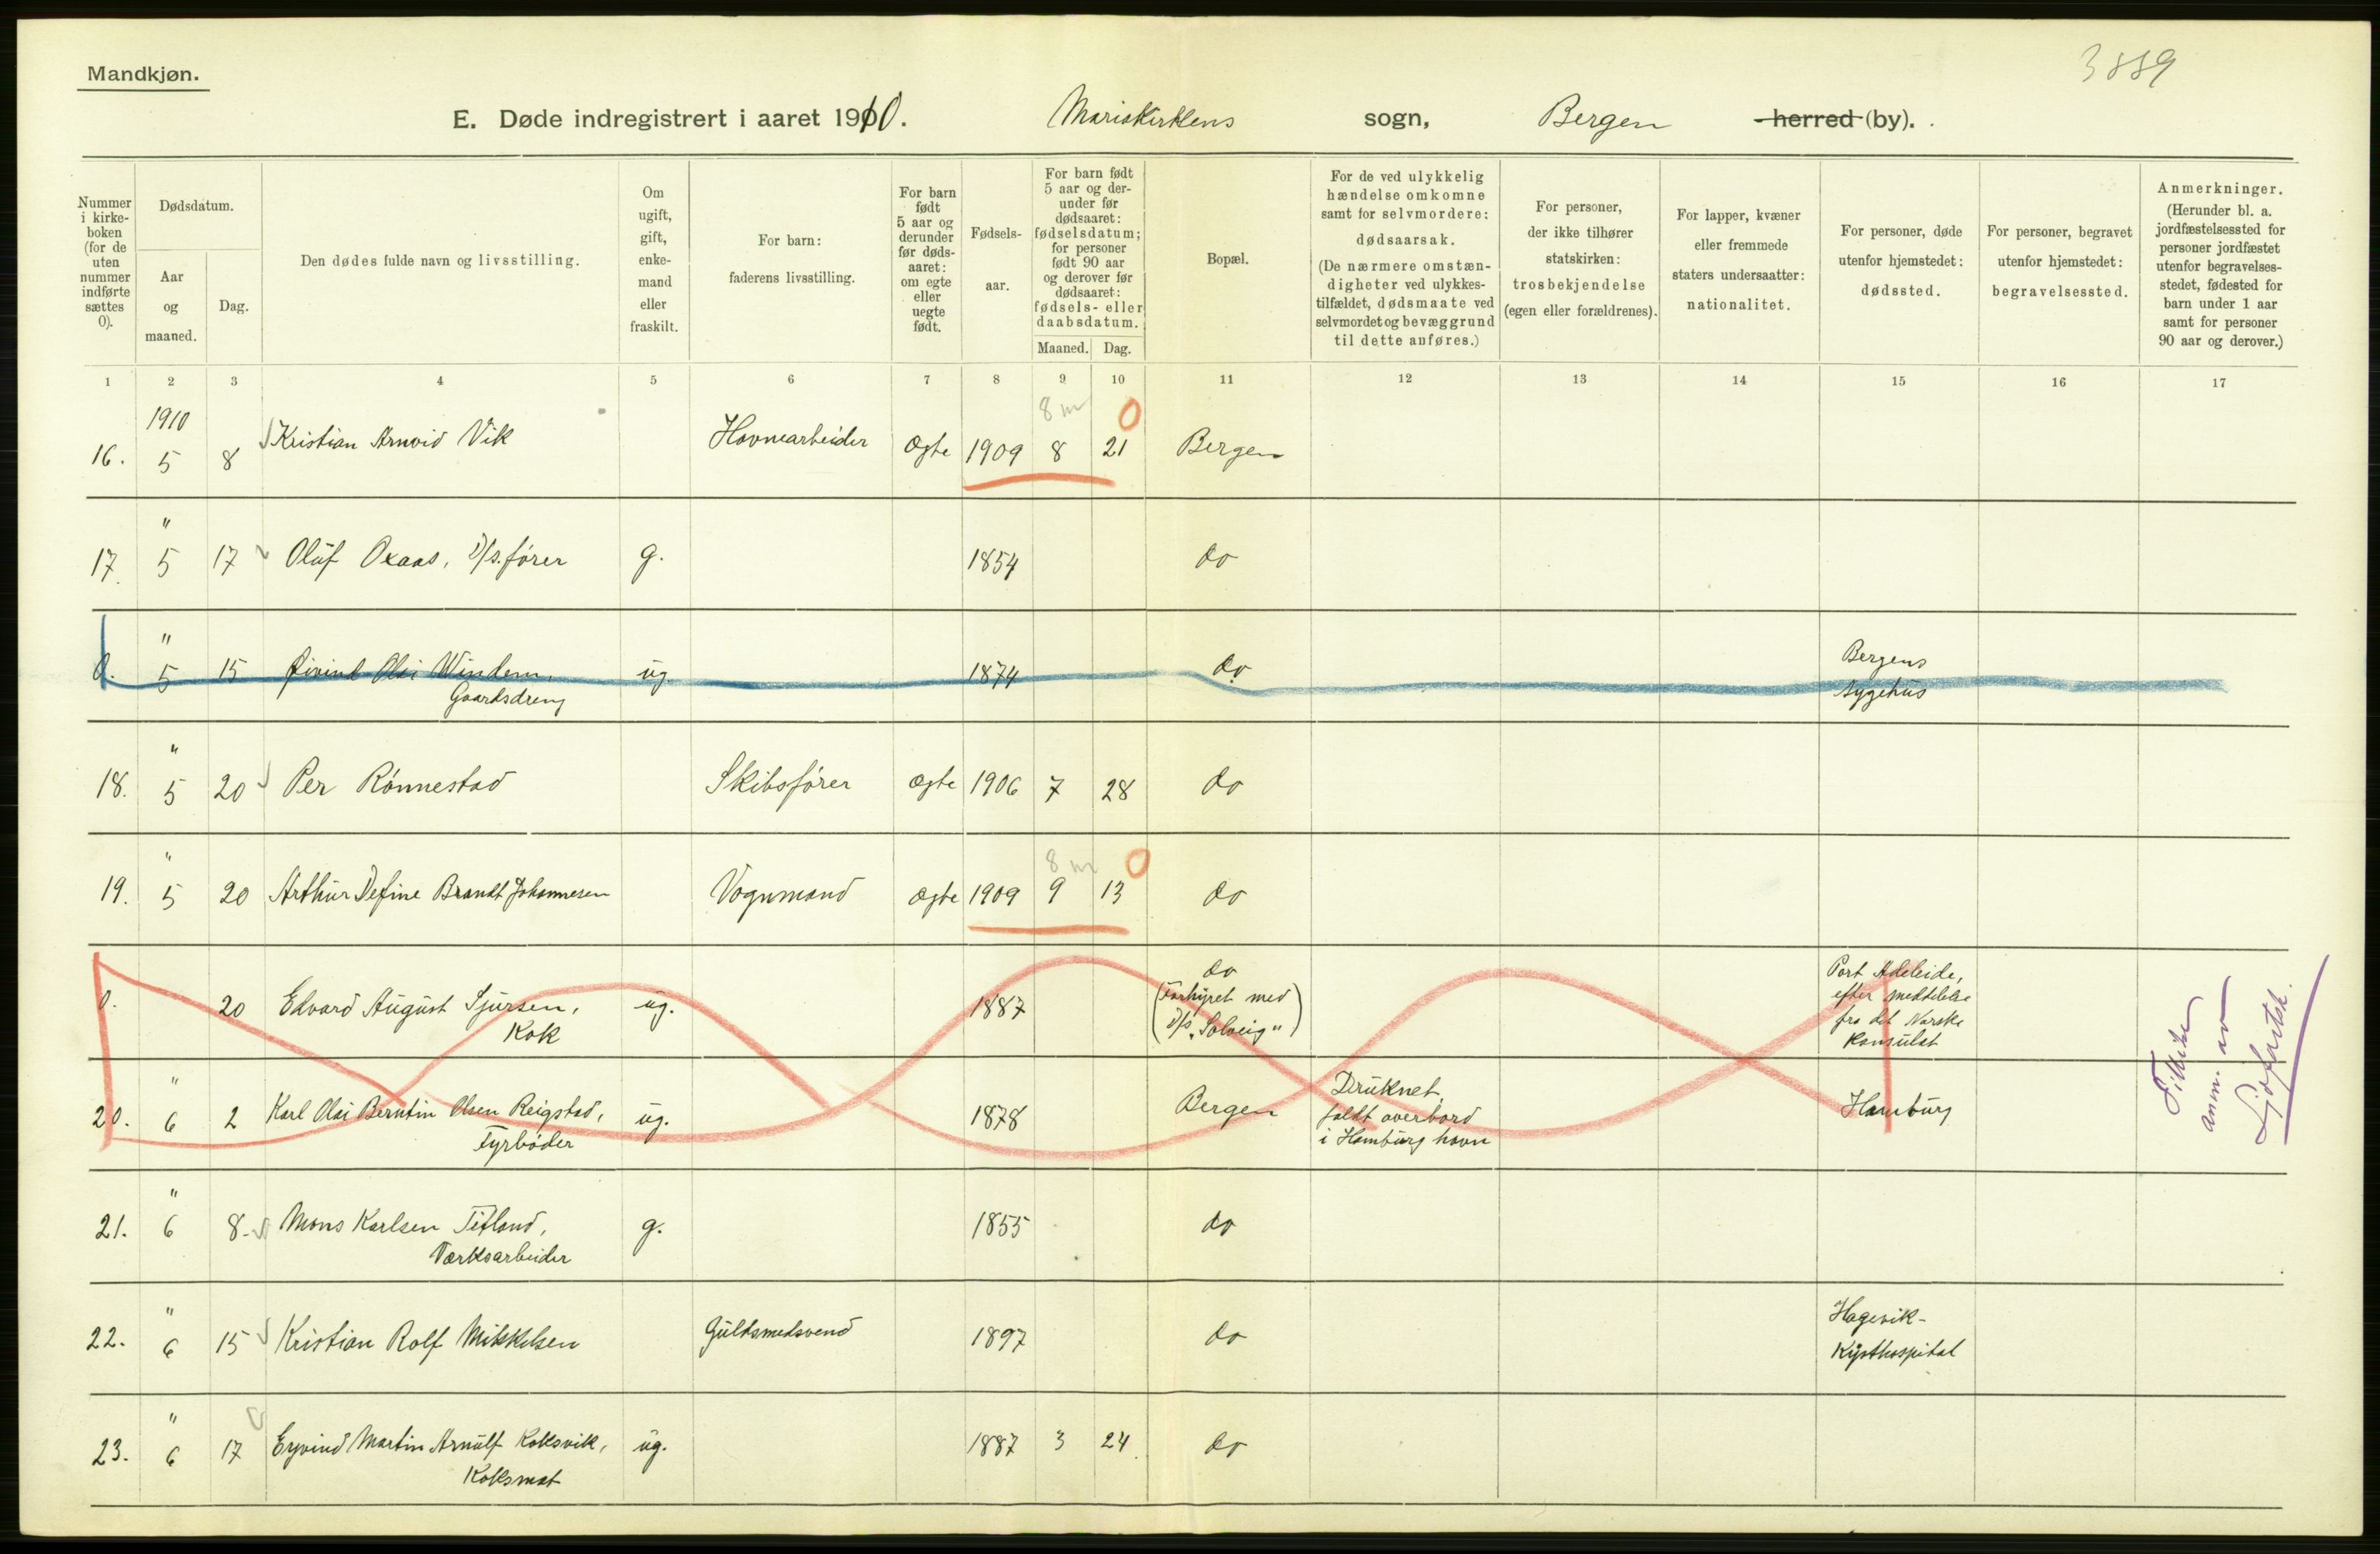 3889
Mandkjøn.
E. Døde indregistrert i aaret 1910. Mariakirkens sogn, Bergen herred (by).
Nummer i kirke- boken (for de uten nummer indførte sættes 0).
Dødsdatum.
Aar og maaned.
Dag.
Den dødes fulde navn og livsstilling.
Om ugift, gift, enke- mand eller fraskilt.
For barn: faderens livsstilling.
For barn født 5 aar og derunder før døds- aaret: om egte eller uegte født.
Fødsels- aar.
For barn født 5 aar og der- under før dødsaaret: fødselsdatum; for personer født 90 aar og derover før dødsaaret: fødsels- eller daabsdatum.
Maaned. Dag.
Bopæl.
For de ved ulykkelig hændelse omkomne samt for selvmordere: dødsaarsak. (De nærmere omstæn- digheter ved ulykkes- tilfældet, dødsmaate ved selvmordet og bevæggrund til dette anføres.)
For personer, der ikke tilhører statskirken: trosbekjendelse (egen eller forældrenes).
For lapper, kvæner eller fremmede staters undersaatter: nationalitet.
For personer, døde utenfor hjemstedet: dødssted.
For personer, begravet utenfor hjemstedet: begravelsessted.
Anmerkninger. (Herunder bl. a. jordfæstelsessted for personer jordfæstet utenfor begravelses- stedet, fødested for barn under 1 aar samt for personer 90 aar og derover.)
1 2 3 4 5 6 7 8 9 10 11 12 13 14 15 16 17
1910 8 m 0
16. 5 8 Kristian Arnvid Vik Havnearbeider Ægte 1909 8 21 Bergen
"
17. 5 17 Oluf Oxaas, D/s.fører g. 1854 do
"
0. 5 15 Øivind Olai Windem, ug. 1874 do Bergens
Gaardsdreng sygehus
"
18. 5 20 Per Rønnestad Skibsfører ægte 1906 7 28 do
" 8 m 0
19. 5 20 Arthur Define Brandt Johannesen Vognmand Ægte 1909 9 13 do
0. 20 Edvard August Sjursen, Kok ug. 1887 do (Forhyret med D/s „Solveig") Port Adeleide, efter meddelelse fra det Norske Konsulat
"
20. 6 2 Karl Olai Berntin Olsen Reigstad, Fyrbøder ug. 1878 Bergen Druknet, faldt overbord i Hamburg havn Hamburg
anm. av Sjöfartsk.
"
21. 6 8. Mons Karlsen Titland, g. 1855 do
Værksarbeider
"
22. 6 15 Kristian Rolf Mikkelsen Guldsmedsvend 1897 do Hagevik-
Kysthospital
"
23. 6 17 Eyvind Martin Arnulf Koksvik, ug. 1887 3 24 do
Koksmat